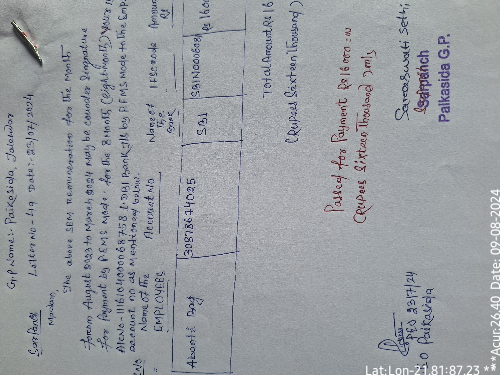 G.P Name:- Paikasida, Jaleswar
Letter No-419 Date:- 23/07/2024
The above SEM remuneration for the Month
from August 2023 to March 2024 May be counter Signature
for Payment by PFMS Mode for the 8 Month (Eight Month) Your
A/c No-
Bank by PFMS Mode to the
account no as Mentioned below.
Name of the EMPLOYEES
Account No
Name of The Bank
IFS code
Amount Rs
30878674025
SBI
Total Amount Rs 16
(Rupees Sixteen Thousand)
Passed for Payment Rs 16000:00
(Rupees Sixteen Thousand) only
Saraswati Sethi
Sarpanch
Paikasida G.P.
PEO 23/7/24
Paikasida
Lat:Lon-21.81:87.23 **Acur:26.40 Date: 09-08-2024